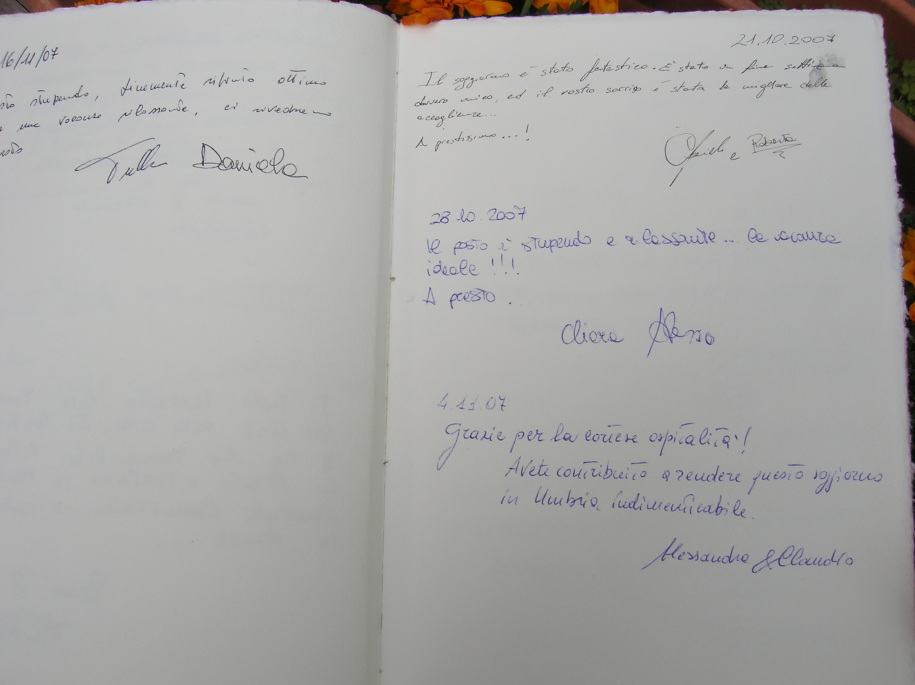 16/11/07
stupendo, finemente rifinito ottimo
una vacanza rilassante, ci rivedremo
Daniela
21.10.2007
Il soggiorno è stato fantastico. È stato un fine
davvero unico, ed il vostro sorriso è stata la migliore delle
accoglienze...
A prestissimo...!
e Roberta
28.10.2007
Il posto è stupendo e rilassante... la vacanza
ideale!!!
A presto.
Chiara
4.11.07
Grazie per la cortese ospitalità!
Avete contribuito a rendere questo soggiorno
in Umbria indimenticabile.
Alessandra & Claudio